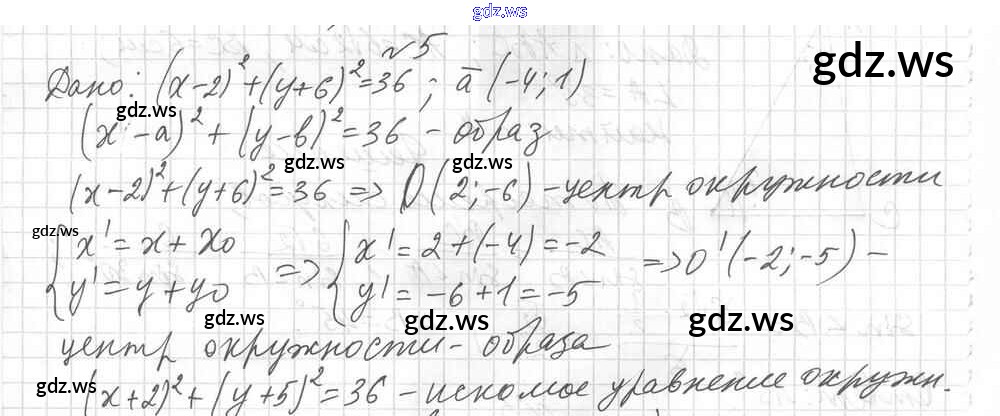 gdz.ws
№5
gdz.ws
Дано: (x-2)²+(y+6)²=36; a̅ (-4; 1)
gdz.ws gdz.ws
(x-a)²+(y-b)²=36 - образ
gdz.ws gdz.ws
(x-2)²+(y+6)²=36 => O(2;-6) - центр окружности
gdz.ws
{x'=x+x₀ {x'=2+(-4)=-2
=> => O'(-2;-5) -
{y'=y+y₀ {y'=-6+1=-5
gdz.ws gdz.ws gdz.ws
центр окружности - образа
gdz.ws gdz.ws
(x+2)²+(y+5)²=36 - искомое уравнение окружн.